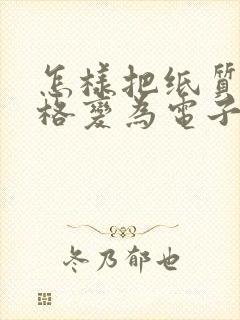 怎樣把纸質
格變為電子
冬乃郁也